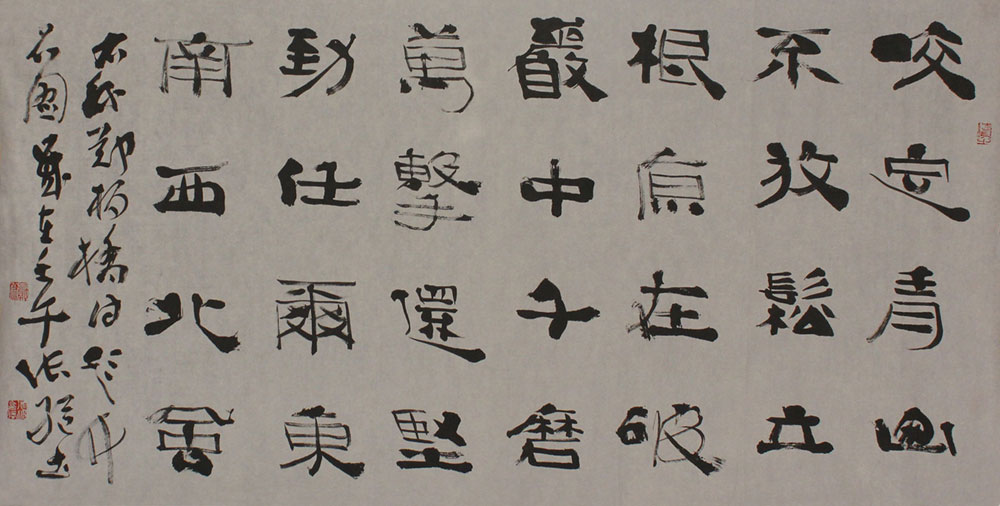 咬定青山
不放鬆立
根原在破
巖中千磨
萬擊還堅
勁任爾東
南西北風
右錄鄭板橋詩題竹
石圖歲在壬午張繼書